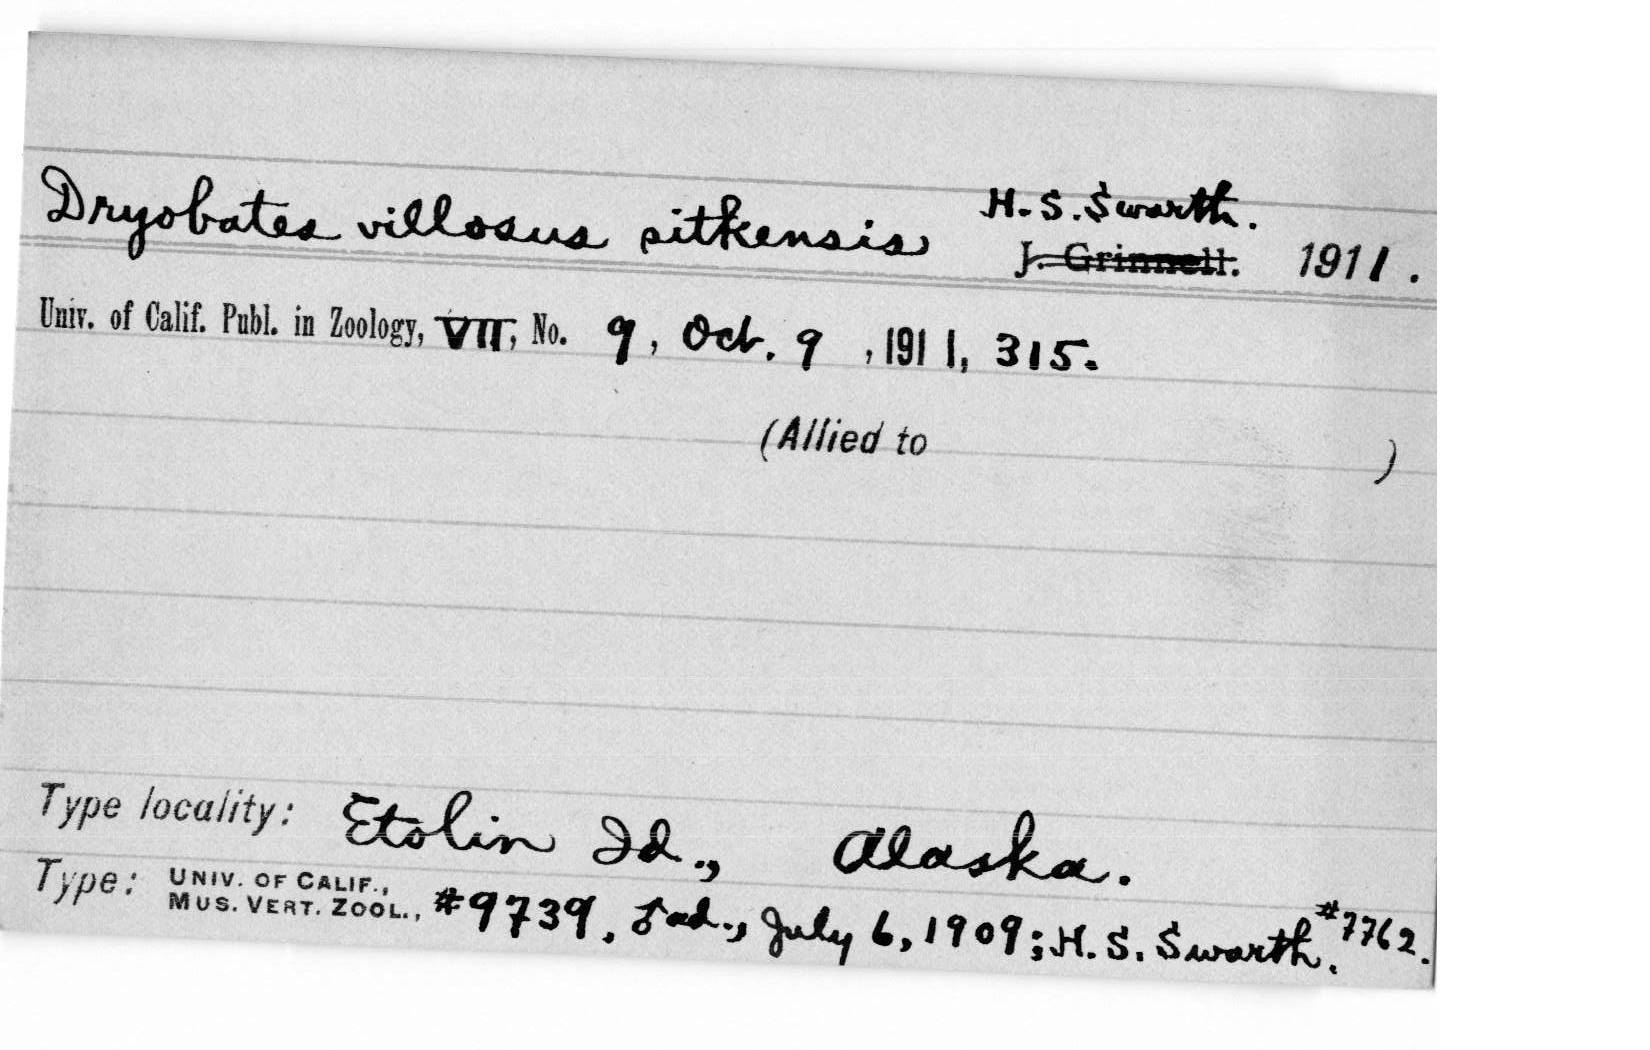 Dryobates villosus sitkensis H. S. Swarth.
J. Grinnell. 1911.
Univ. of Calif. Publ. in Zoology, VII, No. 9, Oct. 9, 1911, 315.
(Allied to )
Type locality: Etolin Id., Alaska.
Type: UNIV. OF CALIF.,
MUS. VERT. ZOOL., #9739, ♂ ad., July 6, 1909; H. S. Swarth. #7762.